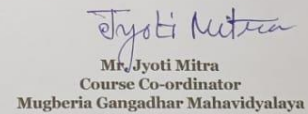 Jyoti Mitra
Mr. Jyoti Mitra
Course Co-ordinator
Mugberia Gangadhar Mahavidyalaya